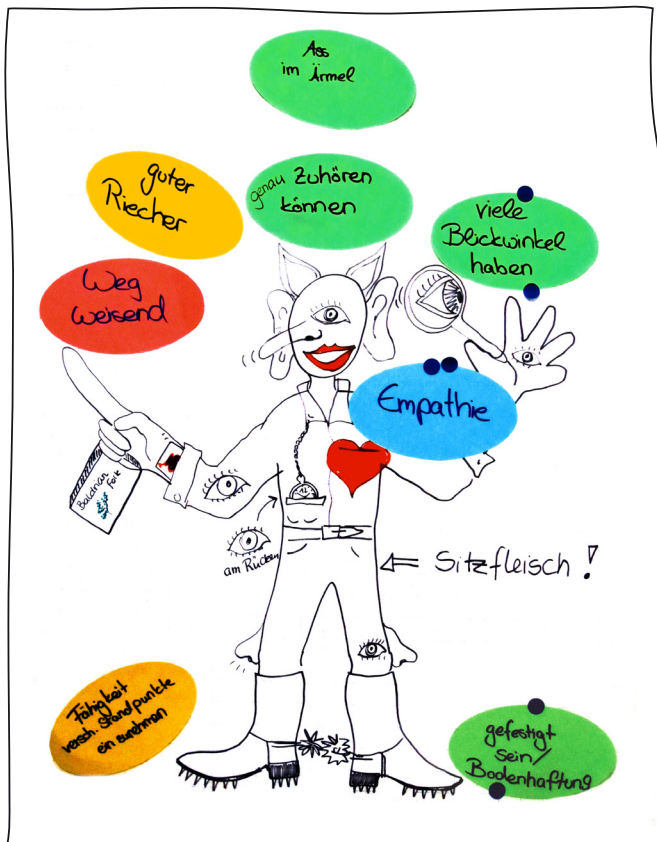 Ass
im Ärmel
guter
Riecher
genau Zuhören
können
viele
Blickwinkel
haben
Weg
weisend
Empathie
Baldrian
Folk
am Rücken
Sitzfleisch!
Fähigkeit
versch. Standpunkte
ein zunehmen
gefestigt
sein/
Bodenhaftung